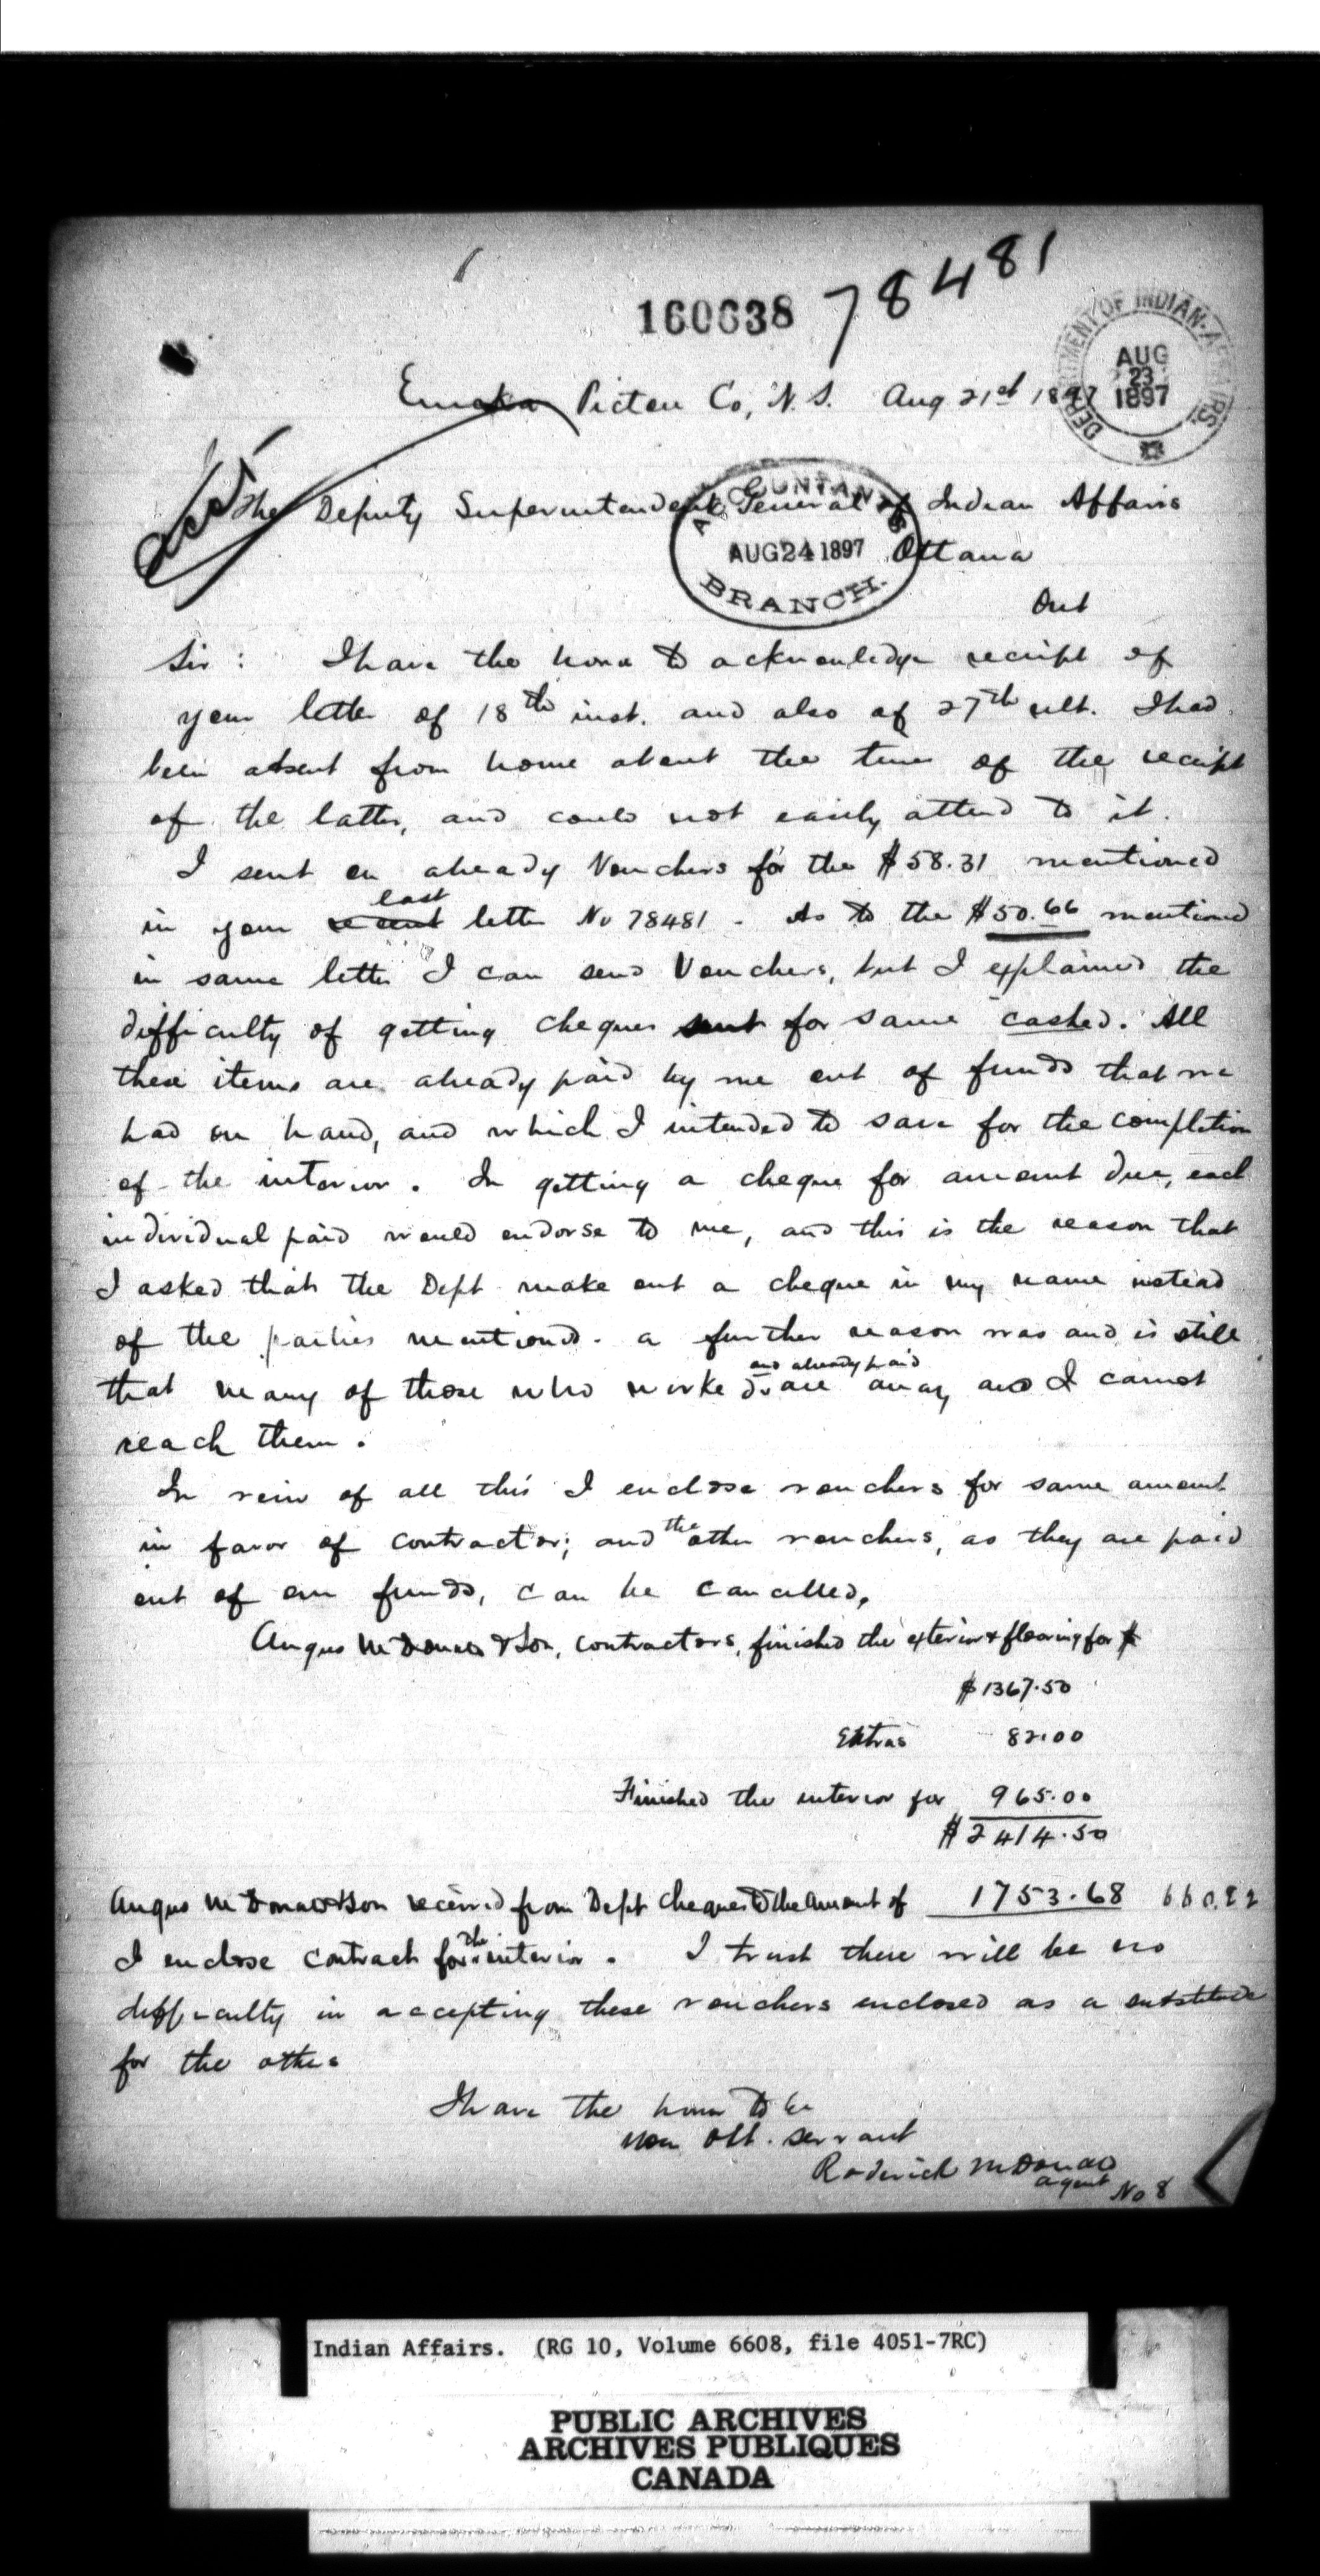 160638 78481
Eureka Pictou Co, N.S. Aug 21st 1897
DEPARTMENT OF INDIAN AFFAIRS.
AUG
23
1897
The Deputy Superintendent General of Indian Affairs
ACCOUNTANT'S
AUG 24 1897
BRANCH.
Ottawa
Ont
Sir: I have the honor to acknowledge receipt of
your letter of 18th inst. and also of 27th ult. I had
been absent from home about the time of the receipt
of the latter, and could not easily attend to it.
I sent on already Vouchers for the $58.31 mentioned
last
in your recent letter No 78481 - As to the $50.66 mentioned
in same letter I can send Vouchers, but I explained the
difficulty of getting cheques sent for same cashed. All
these items are already paid by me out of funds that we
had on hand, and which I intended to save for the completion
of the interior. In getting a cheque for amount due, each
individual paid would endorse to me, and this is the reason that
I asked that the Dept make out a cheque in my name instead
of the parties mentioned. a further reason was and is still
and already paid
that many of those who worked are away and I cannot
reach them.
In view of all this I enclose vouchers for same amount
in favor of contractor; and the other vouchers, as they are paid
out of our funds, can be cancelled.
Angus McDonald & Son, contractors, finished the exterior & flooring for $
$1367.50
Extras 82.00
Finished the interior for 965.00
$2414.50
Angus McDonald & Son received from Dept cheques to the amount of 1753.68 660.82
I enclose contract for the interior. I trust there will be no
difficulty in accepting these vouchers enclosed as a substitute
for the other
I have the honor to be
your Obt. servant
Roderick McDonald
agent No 8
Indian Affairs. (RG 10, Volume 6608, file 4051-7RC)
PUBLIC ARCHIVES
ARCHIVES PUBLIQUES
CANADA